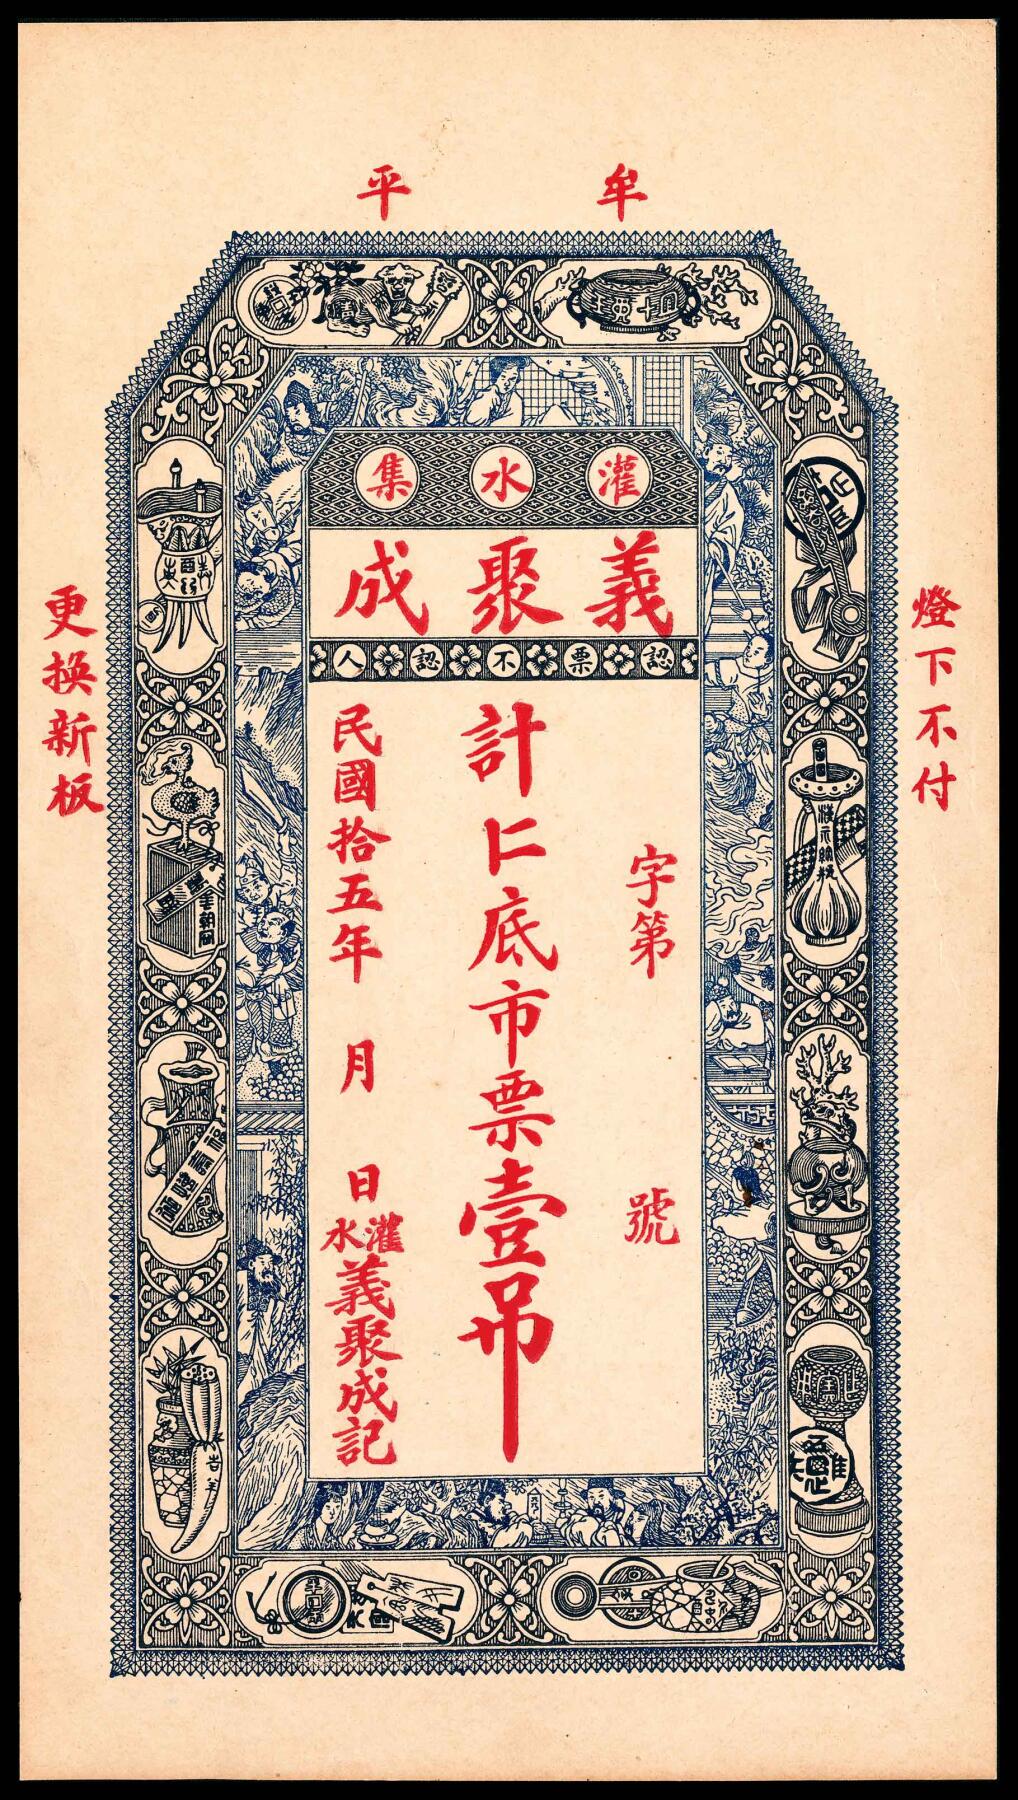 牟平
灌水集
義聚成
認票不認人
燈下不付
字第　號
計仁底市票壹吊
民國拾五年　月　日
灌水
義聚成記
更換新板